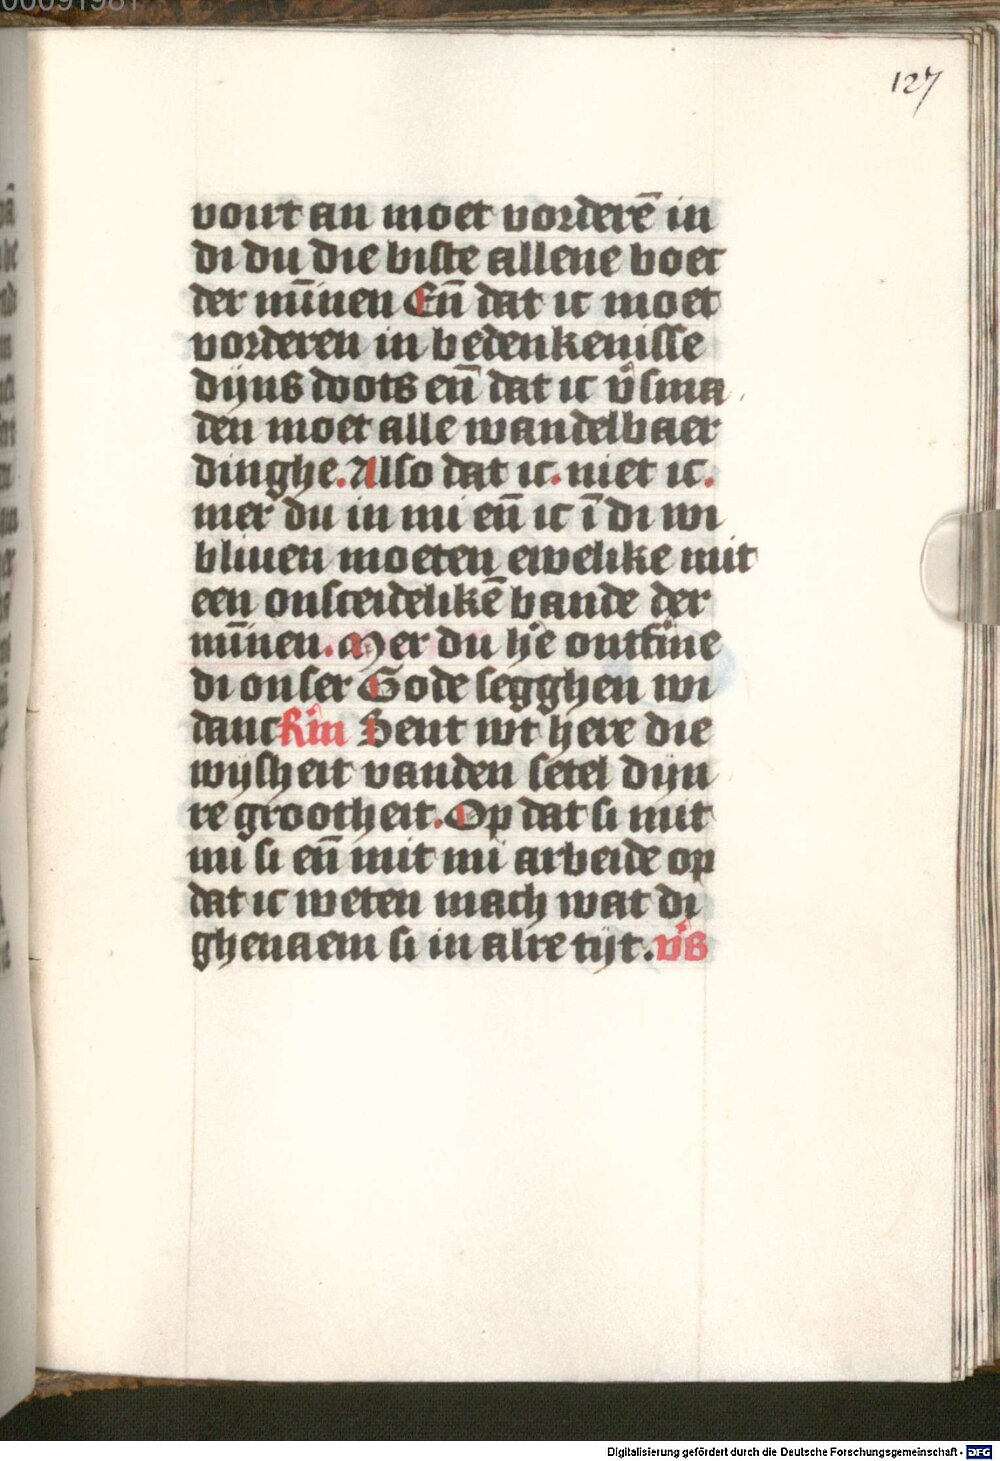 00091981
127
vort an moet vorderē in
di du die biste allene voer
der mīnen Eñ dat ic moet
vorderen in bedenkenisse
dijns doots eñ dat ic v̓sma
den moet alle wandelbaer
dinghe. Also dat ic. niet ic.
mer du in mi eñ ic ī di wi
bliuen moeten ewelike mit
een onsceidelikē bande der
mīnen. Mer du h̓e ontf̓me
di onser Gode segghen wi
danc R̓m Sent wt here die
wijsheit vanden setel dijn
re grootheit. Op dat si mit
mi si eñ mit mi arbeide op
dat ic weten mach wat di
ghenaem si in alre tijt. v̓s
Digitalisierung gefördert durch die Deutsche Forschungsgemeinschaft - DFG